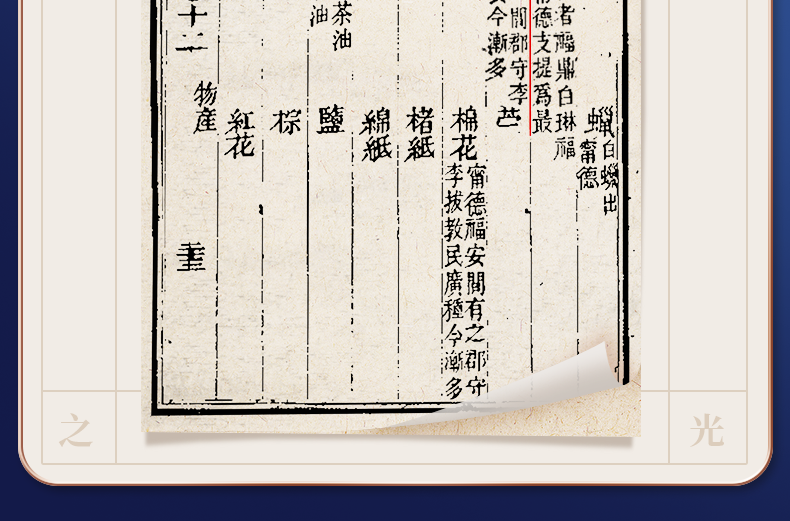 蠟
白蠟出
甯德
者福鼎白琳福
德支提爲最
芑
間郡守李
今漸多
棉花
甯德福安間有之郡守
李拔教民廣種今漸多
楮紙
綿紙
鹽
茶油
油
棕
紅花
物產
十二
之
光